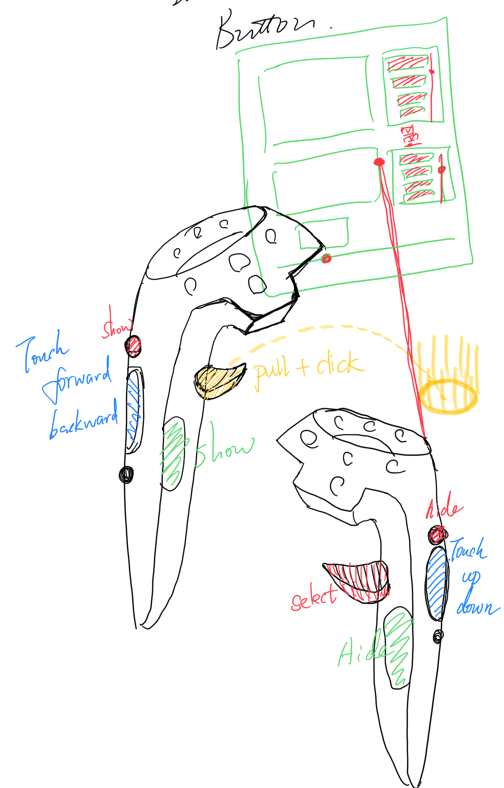 Button.
show
Touch
forward
backward
pull + click
show
hide
Touch
up
down
select
Hide